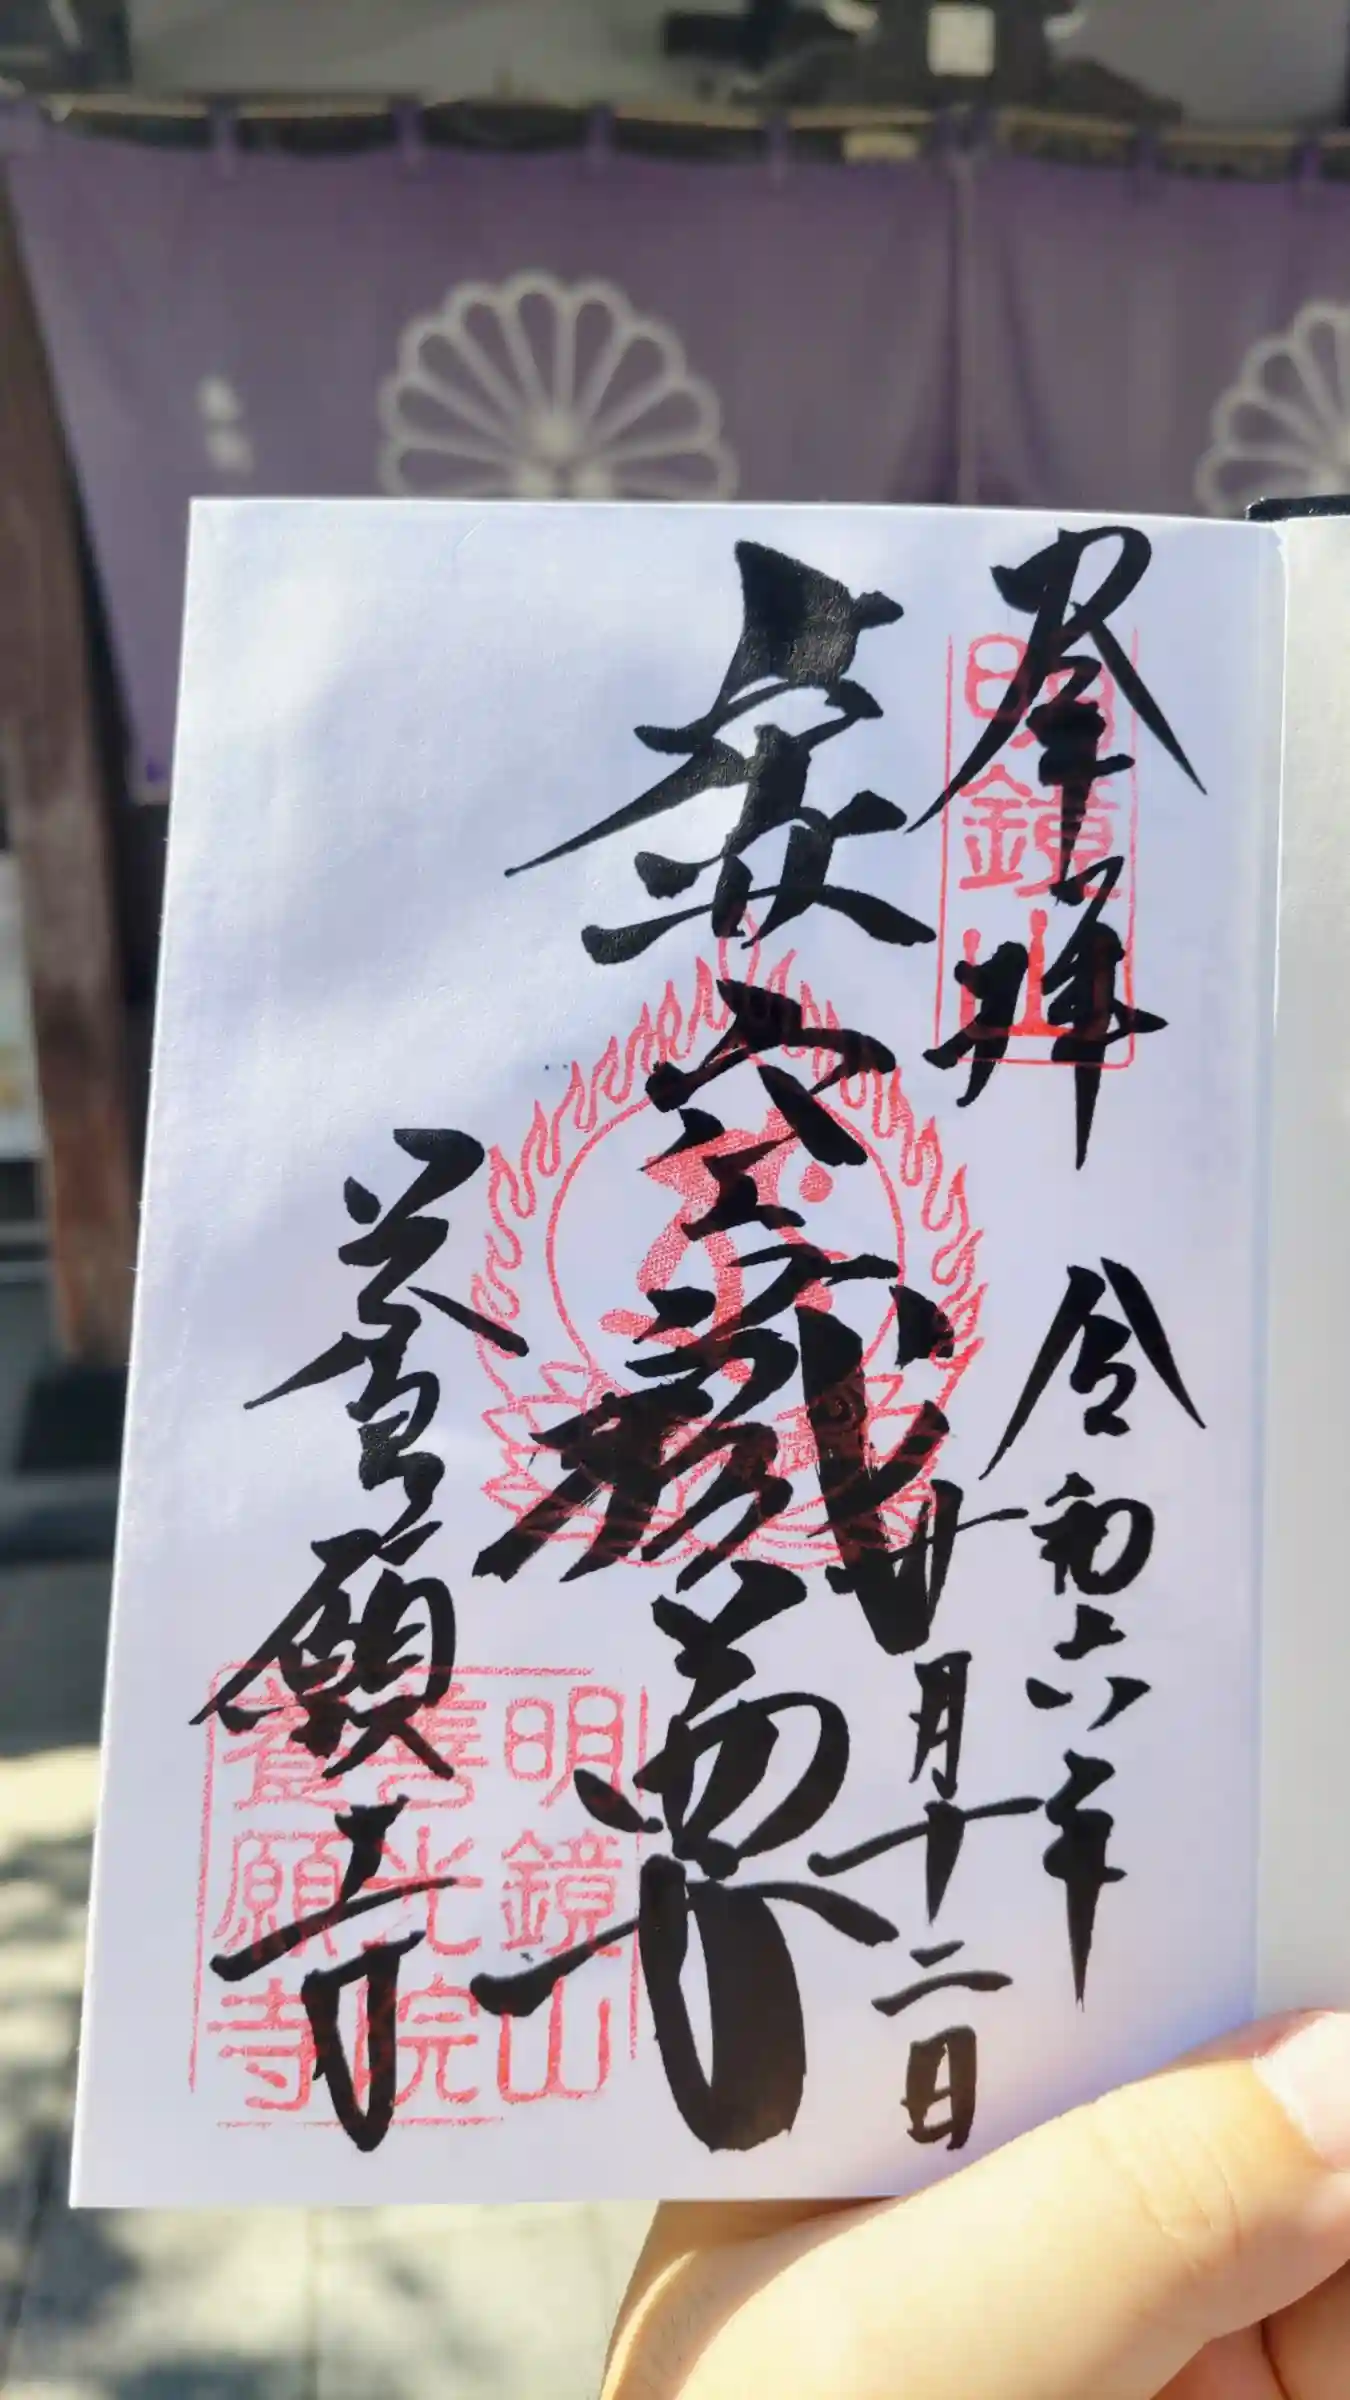 奉拝
明鏡山
令和六年
十月十二日
虚空蔵菩薩
養願寺
明鏡山
善光院
養願寺